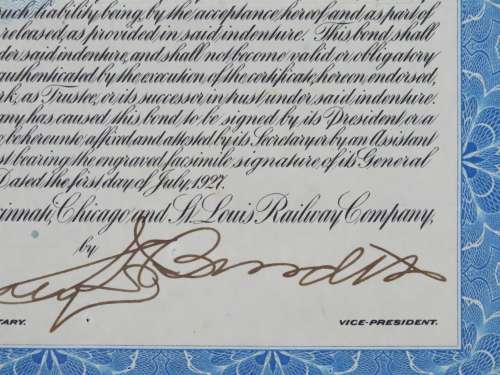 such liability being, by the acceptance hereof and as part of
released, as provided in said indenture. This bond, shall
der said indenture, and shall not become valid or obligatory
authenticated by the execution of the certificate, hereon endorsed,
rk, as Trustee, or its successor in trust under said indenture.
any has caused this bond to be signed by its President or a
be hereunto affixed and attested by its Secretary or by an Assistant
t bearing the engraved, facsimile signature of its General
Dated the first day of July, 1927.
innati, Chicago and St. Louis Railway Company,
by
TARY.
VICE-PRESIDENT.